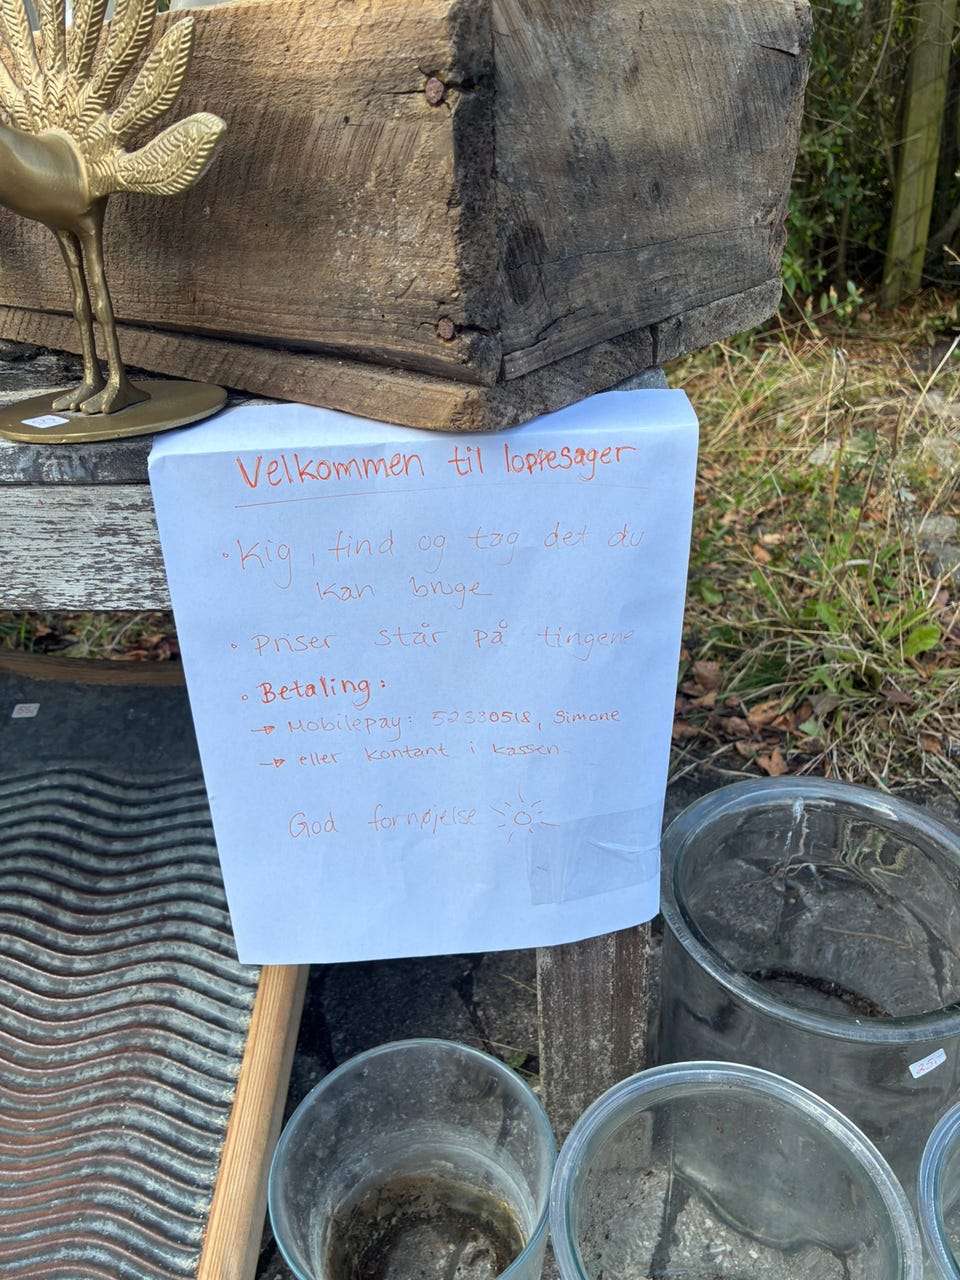 Velkommen til loppesager
• Kig, find og tag det du
kan bruge
• Priser står på tingene
• Betaling:
→ Mobilepay: 52330518, Simone
→ eller kontant i kassen
God fornøjelse